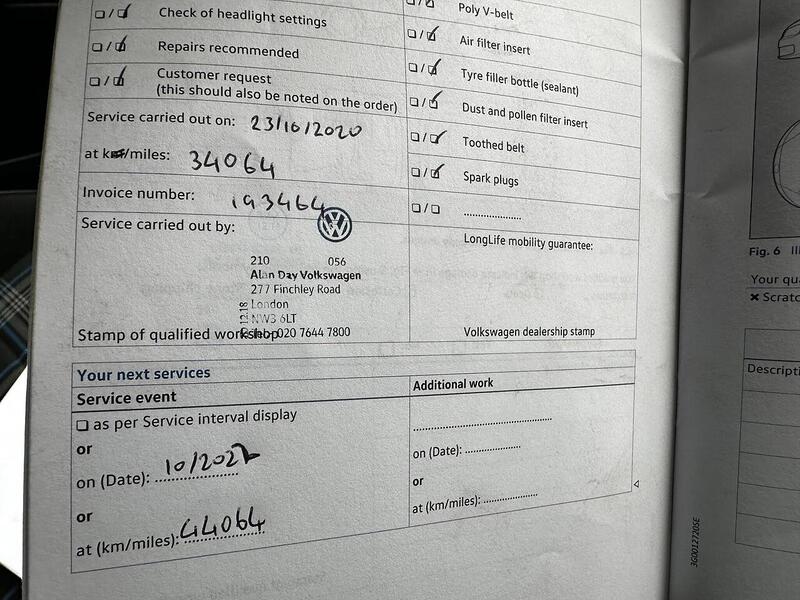 ☐/☑ Check of headlight settings
☐/☑ Repairs recommended
☐/☑ Customer request
(this should also be noted on the order)
Service carried out on: 23/10/2020
at km/miles: 34064
Invoice number: 193464
Service carried out by:
210 056
Alan Day Volkswagen
277 Finchley Road
London
NW3 6LT
020 7644 7800
12.18
Stamp of qualified workshop
Poly V-belt
☐/☑ Air filter insert
☐/☑ Tyre filler bottle (sealant)
☐/☑ Dust and pollen filter insert
☐/☑ Toothed belt
☐/☑ Spark plugs
☐/☐ ....................
LongLife mobility guarantee:
Volkswagen dealership stamp
Your next services
Service event
☐ as per Service interval display
or
on (Date): 10/2022
or
at (km/miles): 44064
Additional work
on (Date): ................
or
at (km/miles): ................
3G0012720SE
Fig. 6
Your
× Scratc
Descripti